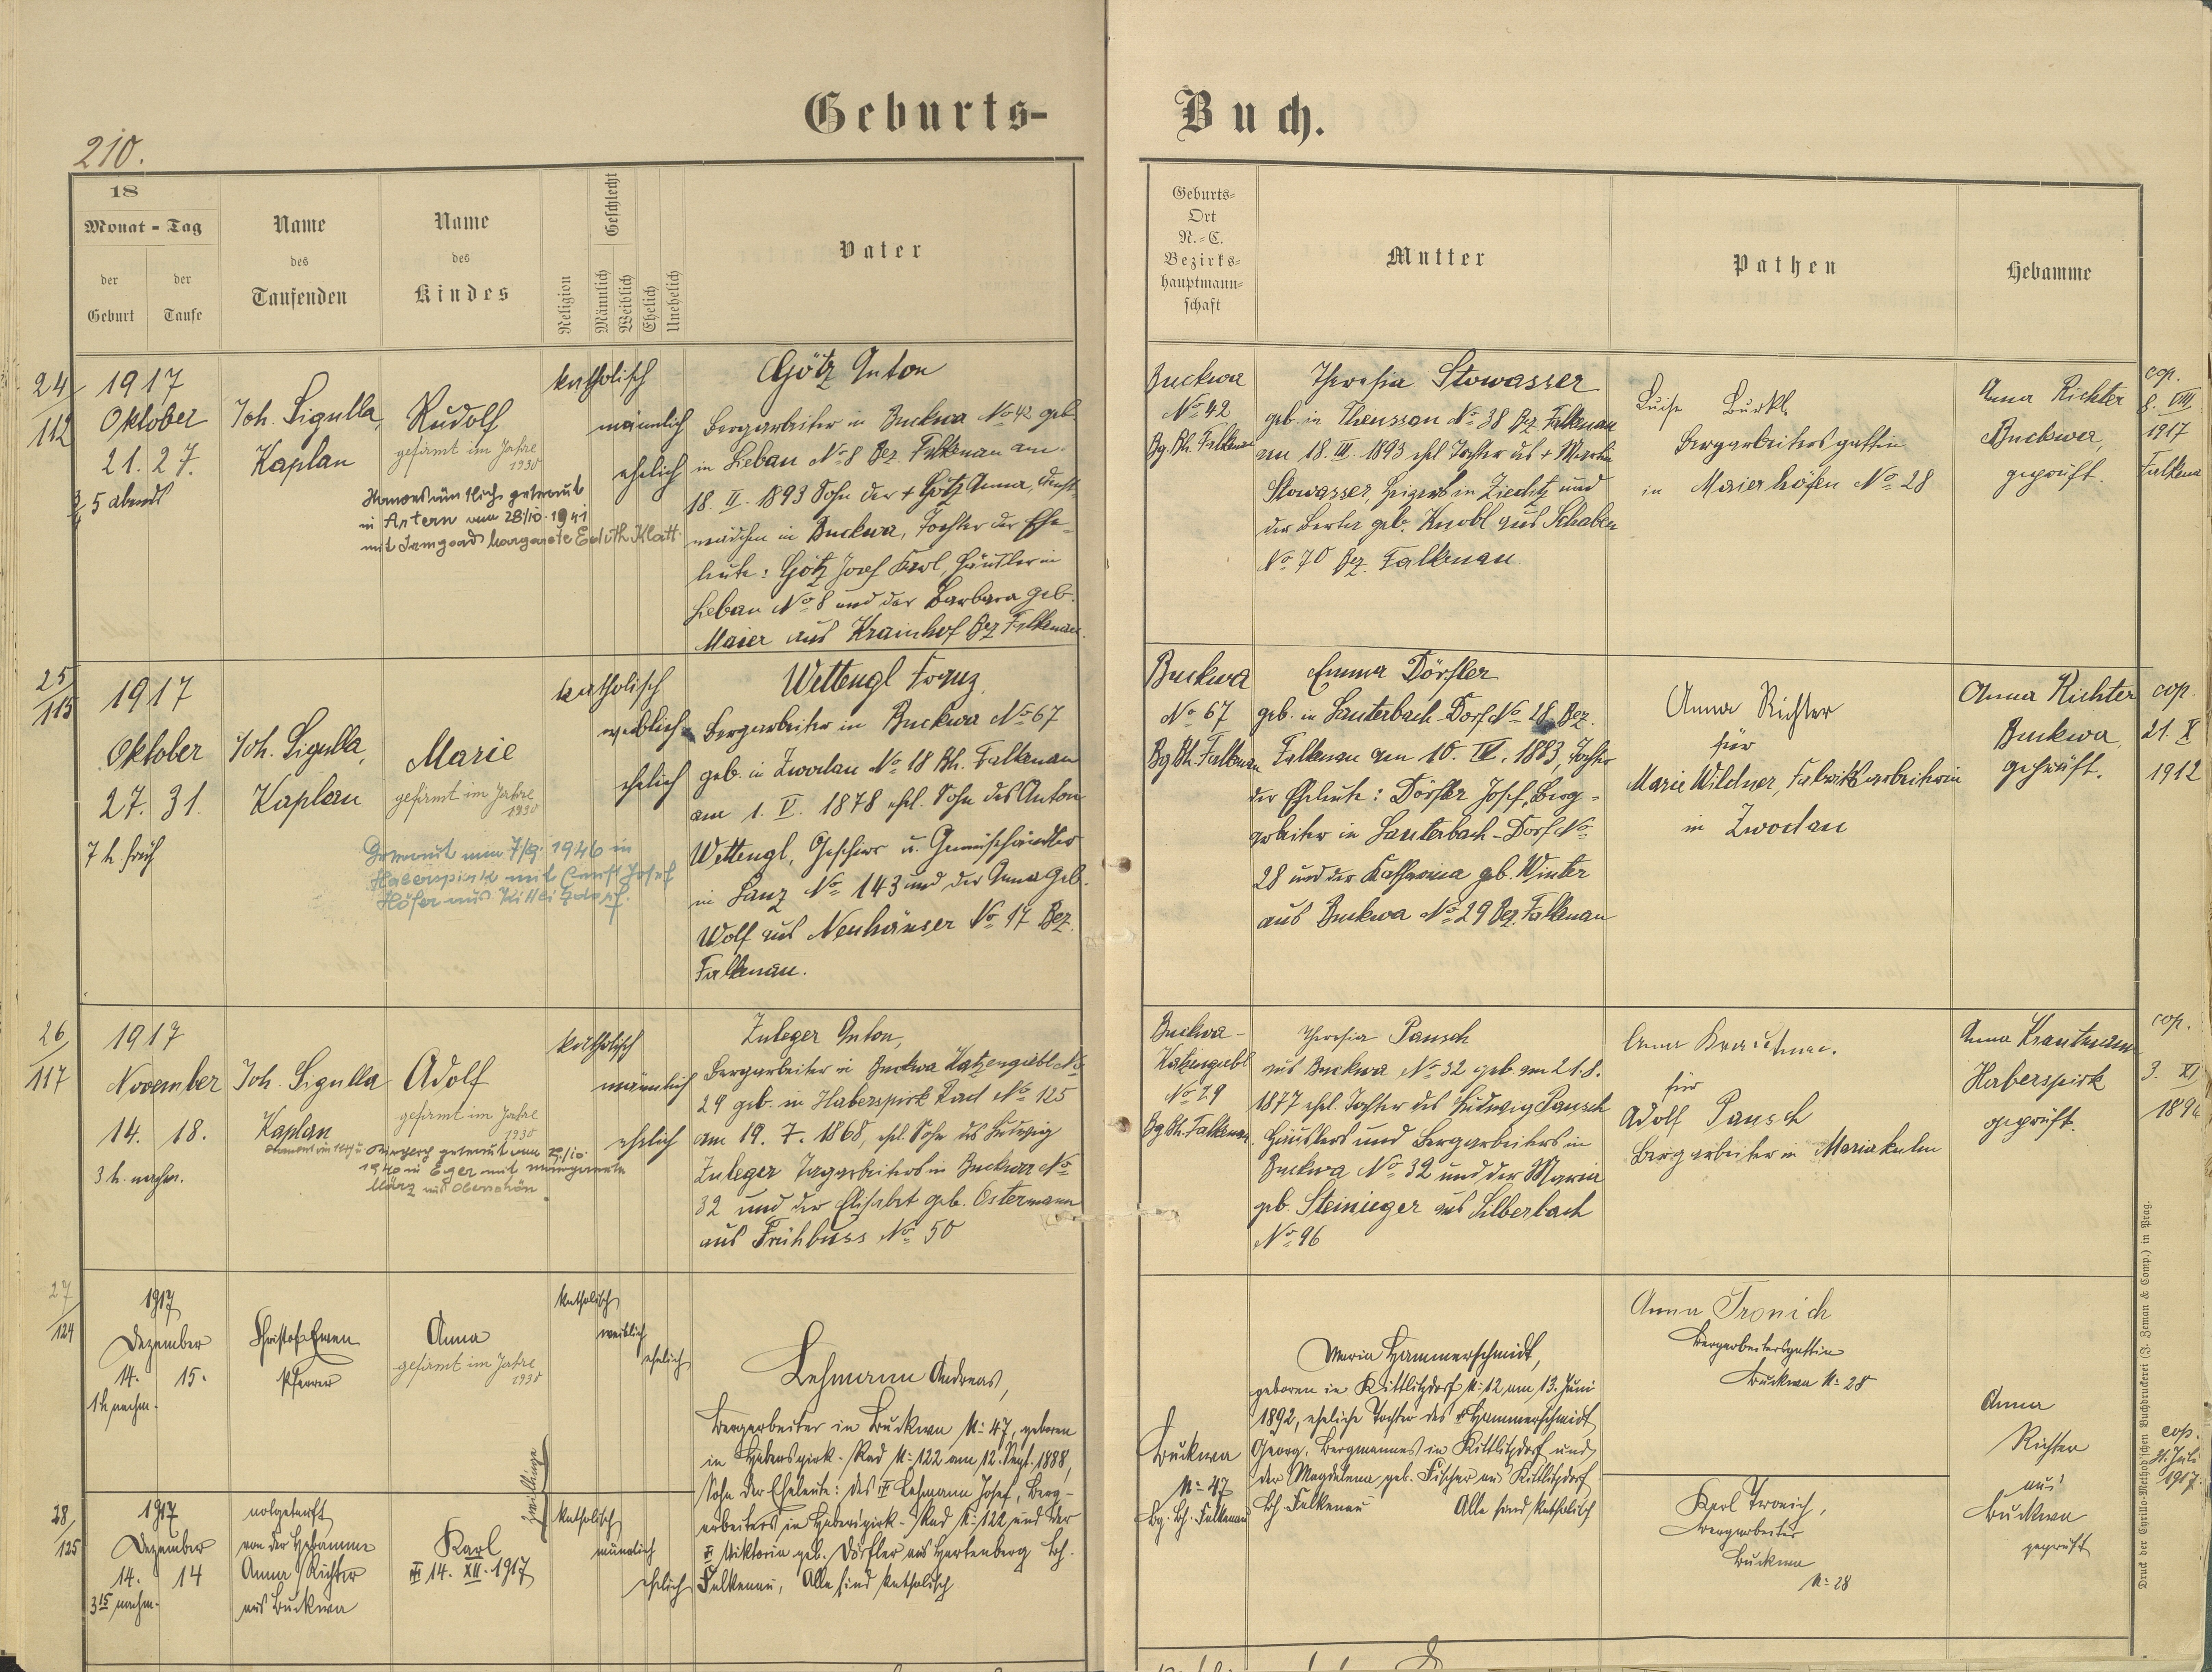 Geburts-
Buch.
210.
18
Monat - Tag
der Geburt
der Taufe
Name
des
Taufenden
Name
des
Kindes
Religion
Geschlecht
Männlich
Weiblich
Ehelich
Unehelich
Vater
Geburts-
Ort
N.-C.
Bezirks-
hauptmann-
schaft
Mutter
Pathen
Hebamme
24/112
1917
Oktober
21. 27.
5 abends
Joh. Sigulla,
Kaplan
Rudolf
gefirmt im Jahre
1930
Standesämtlich getraut
in Artern am 28/10. 1941
mit Irmgard Margarete Edith Klatt
katholisch
männlich
ehelich
Götz Anton
Bergarbeiter in Buckwa No 42 geb.
in Leban No 8 Bez. Falkenau am
18. II. 1893 Sohn der + Götz Anna, Dienst-
mädchen in Buckwa, Tochter der Ehe-
leute: Götz Josef Karl, Häusler in
Leban No 8 und der Barbara geb.
Maier aus Krainhof Bez Falkenau.
Buckwa
No 42
Bg. Bh. Falkenau
Theresia Stowasser
geb. in Theussau No 38 Bez. Falkenau
am 18. III. 1893 ehel. Tochter des + Martin
Stowasser, Heizers in Zieditz und
der Berta geb. Knobl aus Schaben
No 70 Bez. Falkenau
Luise Bürkl,
Bergarbeitersgattin
in Maierhöfen No 28
Anna Richter
Buckwa,
geprüft.
cop.
8. VIII
1917
Falkenau
25/115
1917
Oktober
27. 31.
7 h. früh
Joh. Sigulla,
Kaplan
Marie
gefirmt im Jahre
1930
Getraut am 7/9. 1946 in
Haberspirk mit Josef
Höfer aus Kittlitzdorf.
katholisch
weiblich
ehelich
Wettengl Franz
Bergarbeiter in Buckwa No 67
geb. in Zwodau No 18 Bh. Falkenau
am 1. V. 1878 ehel. Sohn des Anton
Wettengl, Geschirr u. Gemischhändler
in Lanz No 143 und der Anna geb.
Wolf aus Neuhäuser No 17 Bez.
Falkenau.
Buckwa
No 67
Bg Bh. Falkenau
Emma Dörfler
geb. in Lauterbach-Dorf No 28 Bez.
Falkenau am 10. IV. 1883, Tochter
der Eheleute: Dörfler Josef, Berg-
arbeiter in Lauterbach-Dorf No
28 und der Katharina geb. Winter
aus Buckwa No 29 Bez. Falkenau
Anna Richter
für
Marie Wildner, Fabriksarbeiterin
in Zwodau
Anna Richter
Buckwa,
geprüft.
cop.
21. X
1912
26/117
1917
November
14. 18.
3 h. nachm.
Joh. Sigulla
Kaplan
Adolf
gefirmt im Jahre
1930
getraut am
1940 in Eger mit
März aus Oberschön
katholisch
männlich
ehelich
Zuleger Anton,
Bergarbeiter in Buckwa Katzengiebl No
29 geb. in Haberspirk Rad No 125
am 19. 7. 1868, ehel. Sohn des Ludwig
Zuleger Tagarbeiters in Buckwa No
32 und der Elisabet geb. Ostermann
aus Frühbuss No 50
Buckwa-
Katzengiebl
No 29
Bg Bh. Falkenau
Theresia Pansch
aus Buckwa No 32 geb. am 21. 8.
1877 ehel. Tochter des Ludwig Pansch
Häuslers und Bergarbeiters in
Buckwa No 32 und der Maria
geb. Steinieger aus Silberbach
No 96
Anna Krautman.
für
Adolf Pansch
Bergarbeiter in Mariakulm
Anna Krautmann
Haberspirk
geprüft.
cop.
3. XI
27/124
1917
Dezember
14. 15.
1 h nachm.
Christof Emen
Pfarrer
Anna
gefirmt im Jahre
1930
katholisch
weiblich
ehelich
Zwillinge
Lehmann Andreas,
Bergarbeiter in Buckwa N: 47, geboren
in Haberspirk-Rad N: 122 am 12. Sept. 1888,
Sohn der Eheleute: des + Lehmann Josef, Berg-
arbeiters in Haberspirk-Rad N: 122 und der
+ Viktoria geb. Dörfler aus Hartenberg Bh.
Falkenau, Alle sind katholisch
Buckwa
N: 47
Bg. Bh. Falkenau
Maria Hammerschmidt,
geboren in Kittlitzdorf N: 12 am 13. Juni
1892, eheliche Tochter des + Hammerschmidt
Georg, Bergmannes in Kittlitzdorf und
der Magdalena geb. Fischer aus Kittlitzdorf
Bh Falkenau Alle sind katholisch
Anna Tronich
Bergarbeitersgattin
Buckwa N: 28
Anna
Richter
aus
Buckwa
geprüft
cop.
31. Juli
1917.
28/125
1917
Dezember
14. 14
3 15 nachm.
notgetauft
von der Hebamme
Anna Richter
aus Buckwa
Karl
+ 14. XII. 1917
katholisch
männlich
ehelich
Karl Tronich,
Bergarbeiter
Buckwa
N: 28
Druck der Cyrillo-Method'schen Buchdruckerei (J. Zeman & Comp.) in Prag.